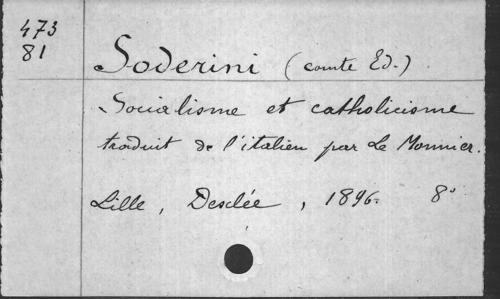 473
81
Soderini (comte Ed.)
Socialisme et catholicisme
traduit de l'italien par Le Monnier.
Lille, Desclée, 1896. 8°